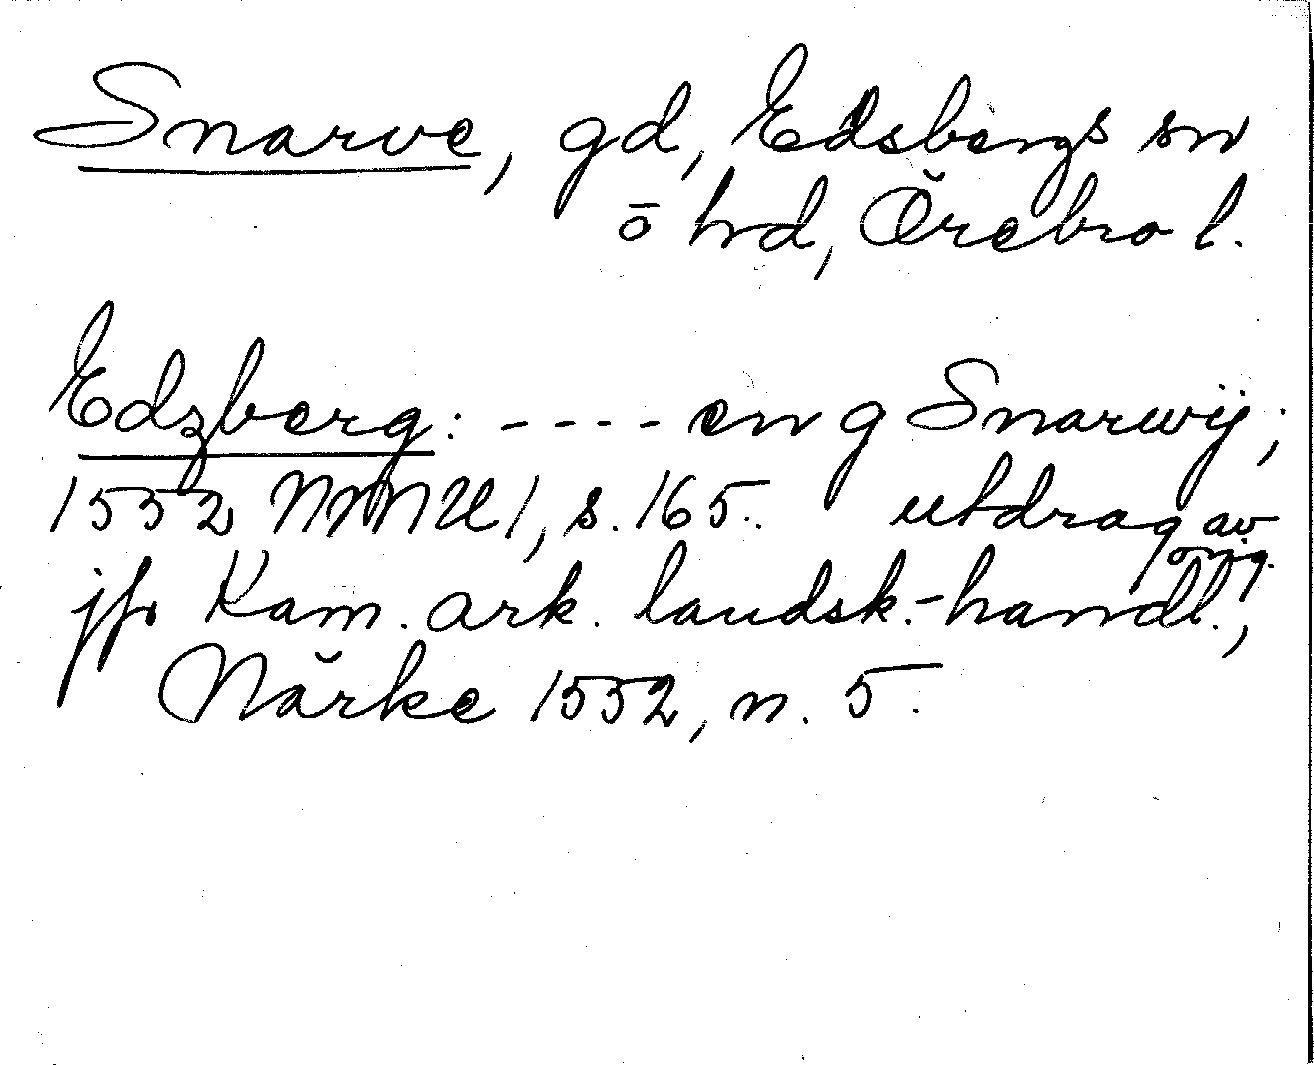 Snarve, gd, Edsbergs sn
ō hd, Örebro l.
Edzberg: ---- en g Snarwÿ;
1552 NMU 1, s. 165. utdrag av
orig.
jfr Kam. ark. landsk.-handl.,
Närke 1552, n. 5.